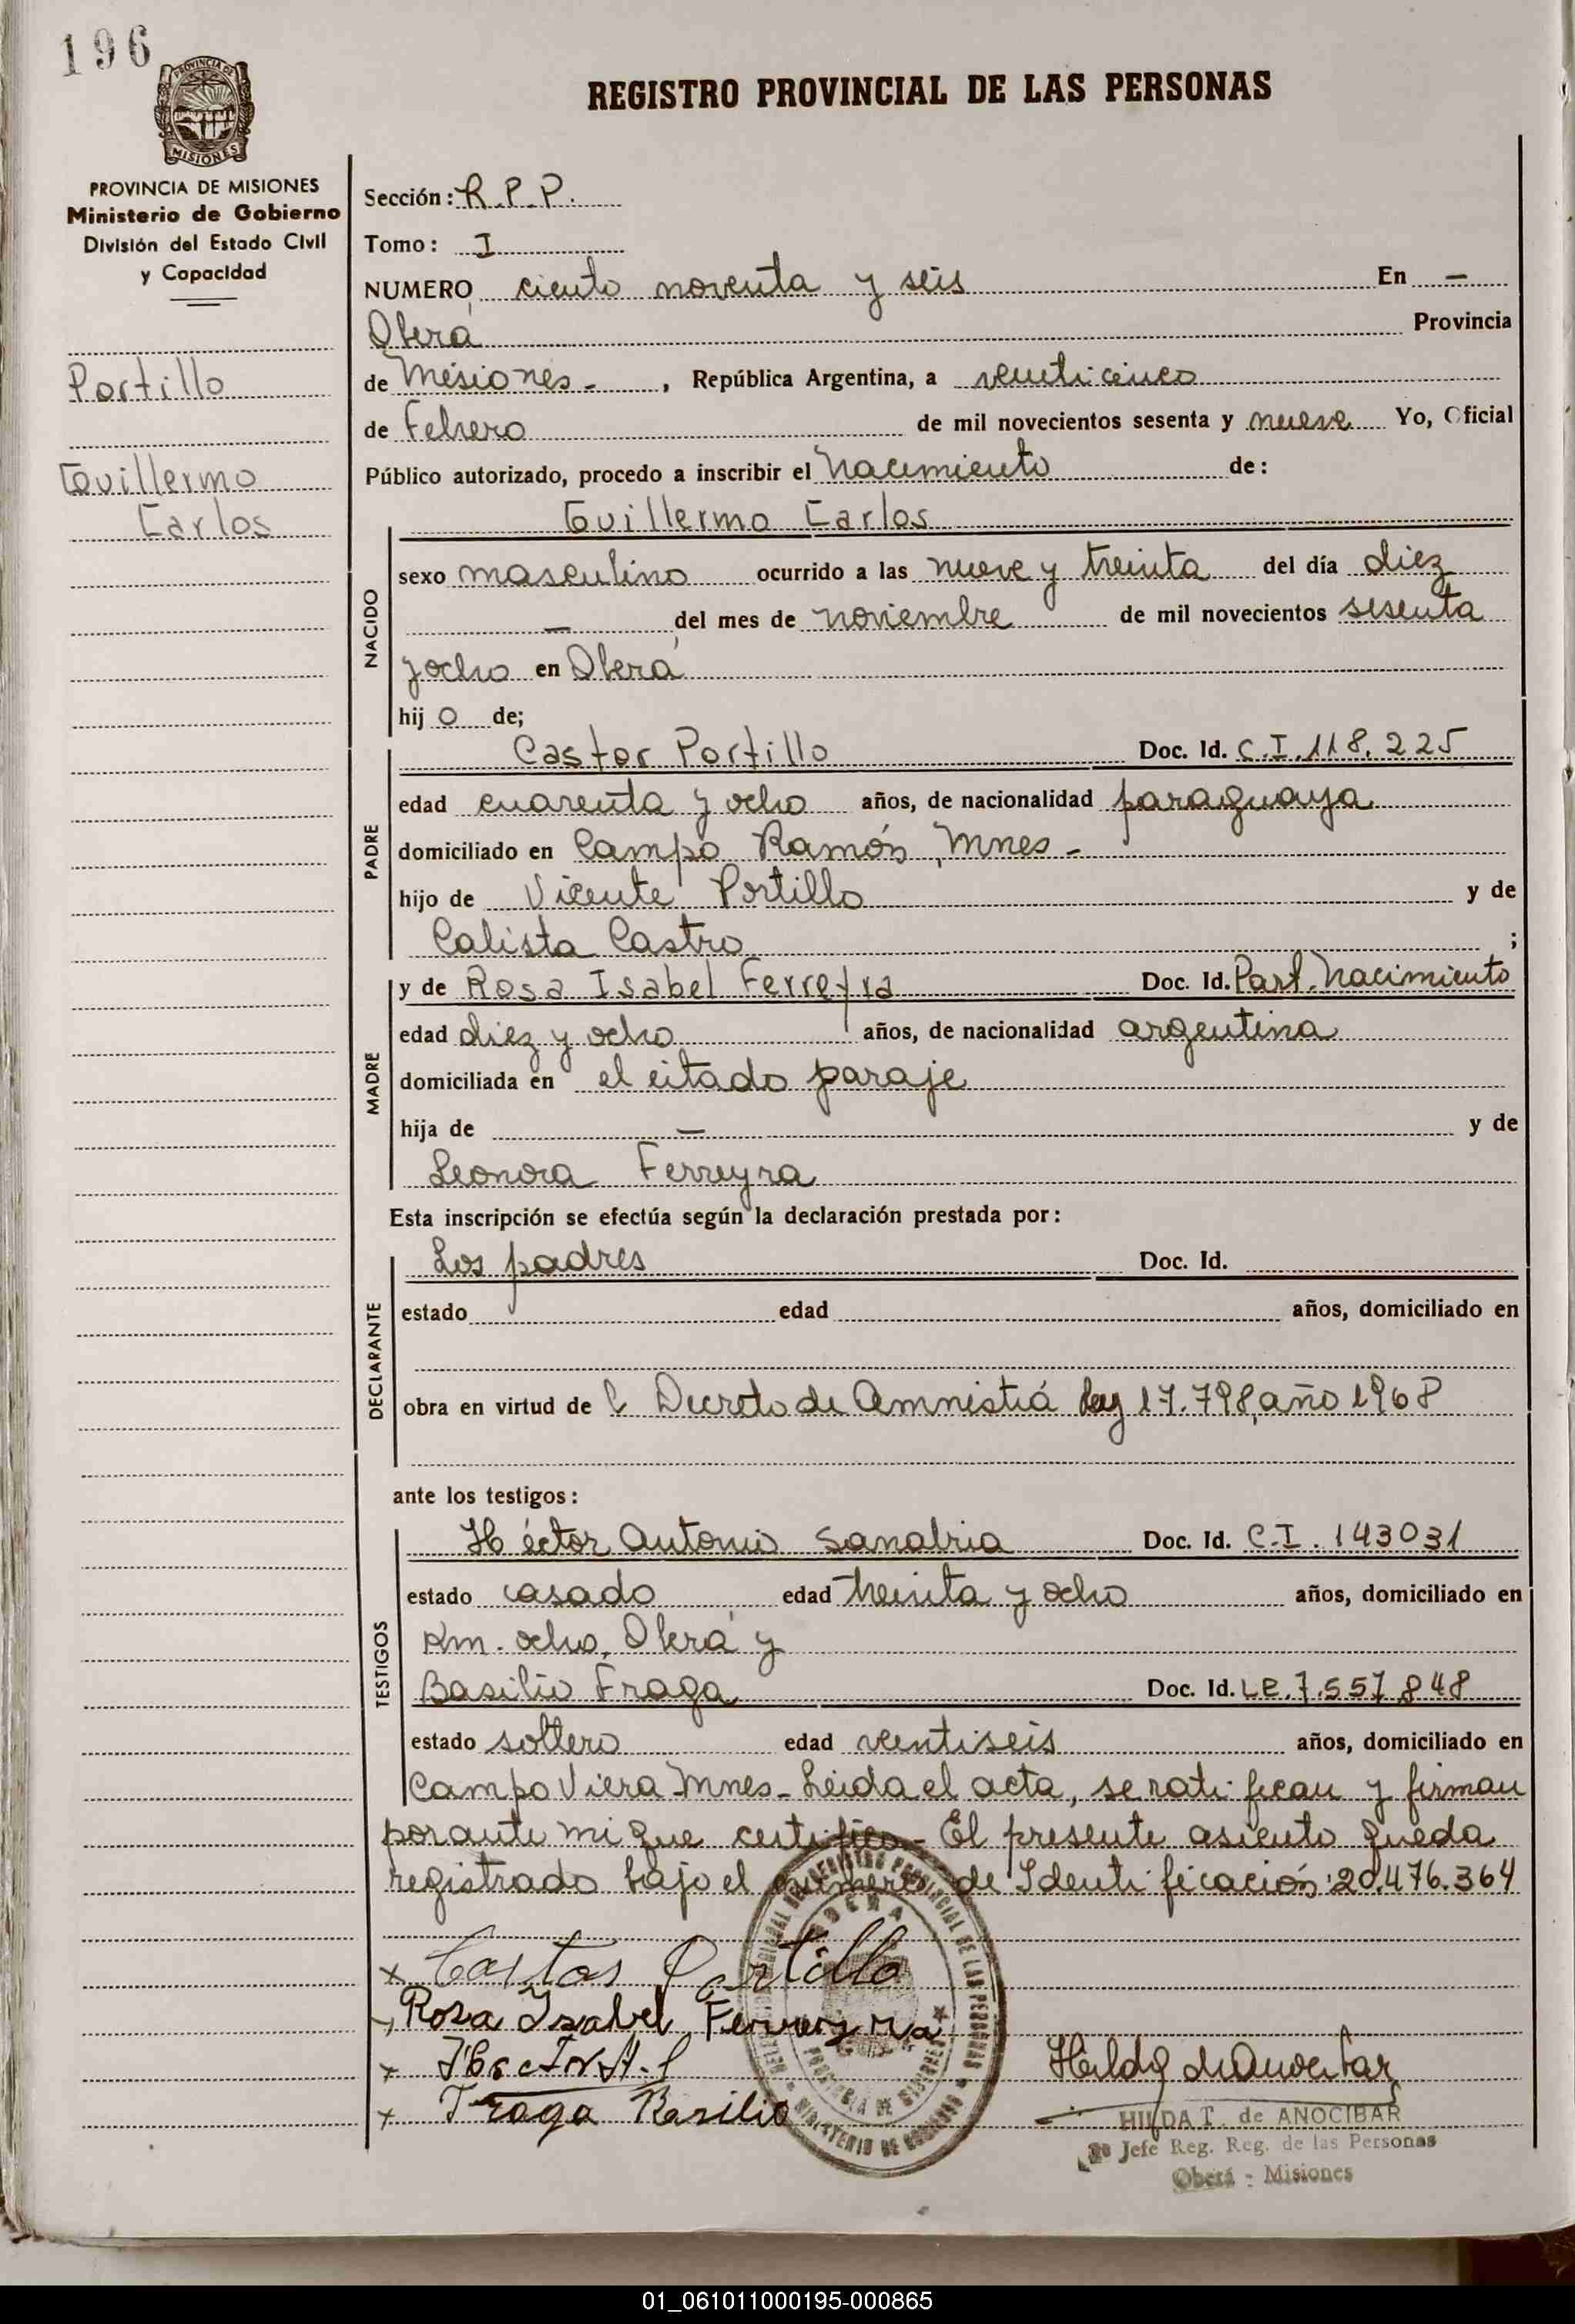 196
PROVINCIA DE
MISIONES
REGISTRO PROVINCIAL DE LAS PERSONAS
PROVINCIA DE MISIONES
Ministerio de Gobierno
División del Estado Civil
y Capacidad
Portillo
Guillermo
Carlos
Sección: R.P.P.
Tomo: I
NUMERO ciento noventa y seis En —
Oberá Provincia
de Misiones - , República Argentina, a veinticinco
de Febrero de mil novecientos sesenta y nueve Yo, Oficial
Público autorizado, procedo a inscribir el Nacimiento de:
NACIDO
Guillermo Carlos
sexo masculino ocurrido a las nueve y treinta del día diez
— del mes de noviembre de mil novecientos sesenta
y ocho en Oberá
hij o de;
PADRE
Castor Portillo Doc. Id. C.I. 118.225
edad cuarenta y ocho años, de nacionalidad paraguaya
domiciliado en Campo Ramón, Mnes -
hijo de Vicente Portillo y de
Calista Castro ;
MADRE
y de Rosa Isabel Ferreyra Doc. Id. Part. Nacimiento
edad diez y ocho años, de nacionalidad argentina
domiciliada en el citado paraje
hija de — y de
Leonora Ferreyra
Esta inscripción se efectúa según la declaración prestada por:
DECLARANTE
Los padres Doc. Id.
estado edad años, domiciliado en
obra en virtud de l Decreto de Amnistiá ley 17.798, año 1968
ante los testigos:
TESTIGOS
Héctor Antonio Sanabria Doc. Id. C.I. 143031
estado casado edad treinta y ocho años, domiciliado en
Km. ocho, Oberá y
Basilio Fraga Doc. Id. LE. 7.557.848
estado soltero edad ventiseis años, domiciliado en
Campo Viera Mnes - Leida el acta, se ratifican y firman
por ante mi que certifico - El presente asiento queda
registrado bajo el número de Identificación: 20.476.364
x Castor Portillo
Rosa Isabel Ferreyra
x
x Fraga Basilio
OBERA
PROVINCIA DE MISIONES
MINISTERIO DE GOBIERNO
HILDA T. de ANOCIBAR
2º Jefe Reg. Reg. de las Personas
Oberá - Misiones
01_061011000195-000865